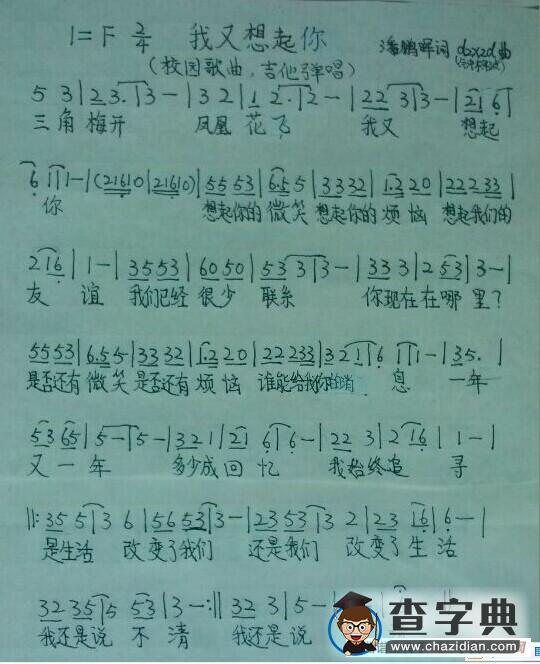 1=F 2/4 我又想起你
潘鹏晖词 曲
(校园歌曲,吉他弹唱)
5 3|2 3.|3-|3 2|1 2.|2-|2 2 3|3-|2 1 6|
三角梅开 凤凰花飞 我又 想起
6 1|1-|(21610|21610)|55 53|6.5 5|33 32|1.2 20|22 2 33|
你 想起你的微笑 想起你的烦恼 想起我们的
2 1 6|1-|35 53|60 50|53 3|3-|33 3|2 53|3-|
友谊 我们已经 很少 联系 你现在在哪里?
55 53|6.5 5|33 32|1.2 20|22 233|3 2 1|6 1|1-|35.|
是否还有微笑 是否还有烦恼 谁能给我你的消息 一年
53 65|5-|5-|32 1|21 6|6-|22 3|2 16|1-|
又一年 多少成回忆 我始终追寻
‖:35 5|3 6|56 53|3-|23 53|3 2|23 16|6-|
是生活 改变了我们 还是我们 改变了生活
32 35|5 53|3-:‖32 3|5-|
我还是说 不清 我还是说
查字典
www.chazidian.com